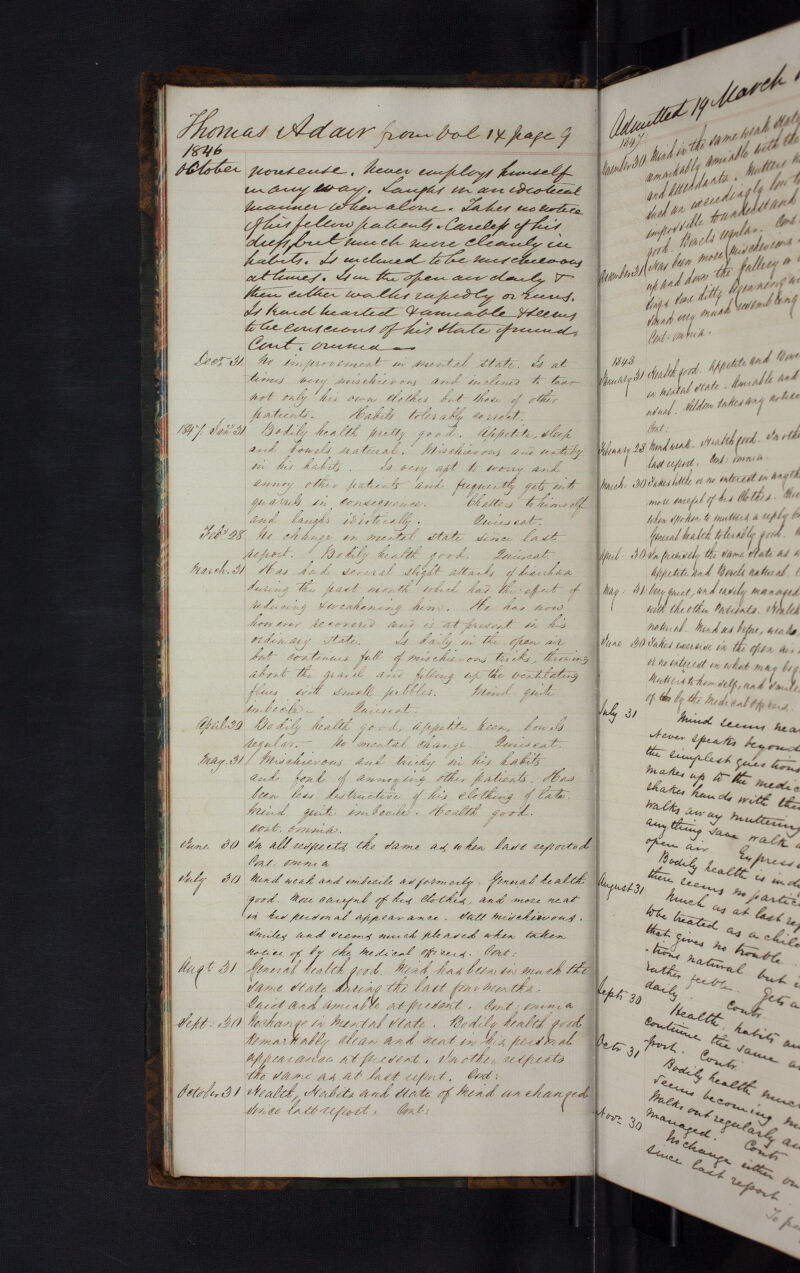 Thomas Adair from Vol 14 page 9
1846
October nonsense. Never employs himself
in any way. Laughs in an idiotical
manner when alone. Takes no notice
of his fellow patients. Careless of his
dress but much more cleanly in
habits. Is inclined to be mischievous
at times. Is in the open air daily &
then either walks rapidly or runs.
Is kind hearted & amiable & seems
to be conscious of his state of mind.
Cont. omnia
Decr. 31 No improvement in mental state. Is at
times very mischievous and inclined to tear
not only his own clothes but those of other
patients. Habits tolerably correct.
1847. Jany. 31 Bodily health pretty good. Appetite, sleep
and bowels natural. Mischievous and
in his habits. Is very apt to worry and
annoy other patients and frequently gets into
quarrels in consequence. Chatters to himself
and laughs idiotically. Quiescat.
Feby. 28 No change in mental state since last
report. Bodily health good. Quiescat.
March. 31 Has had several slight attacks of diarrhœa
during the past month which had the effect of
reducing & weakening him. He has now
however recovered and is at present in his
ordinary state. Is daily in the open air
but continues full of mischievous tricks, throwing
about the gravel and filling up the ventilating
flues with small pebbles. Mind quite
imbecile. Quiescat.
April 30 Bodily health good, appetite keen, bowels
regular. No mental change. Quiescat.
May. 31 Mischievous and tricky in his habits
and fond of annoying other patients. Has
been less destructive of his clothing of late.
Mind quite imbecile. Health good.
Cont. omnia.
June 30 In all respects the same as when last reported
Cont. omnia
July 31 Mind weak and imbecile as formerly. General health
good. More careful of his clothes, and more neat
in his personal appearance. Still mischievous.
Smiles and seems much pleased when taken
notice of by the Medical Officers. Cont:
Augt 31 General health good. Mind has been in much the
same state during the last few months.
Quiet and amiable at present. Cont. omnia
Sept. 30 No change in Mental State. Bodily health good
Remarkably clean and neat in his personal
appearance at present. In other respects
the same as at last report. Cont:
October 31 Health, Habits and state of Mind unchanged
since last report. Cont:
Admitted 19 March
1847
November 30 Mind in the same weak state
remarkably amiable with the
and attendants. Mutters
such an exceedingly low
impossible to understand
good. Bowels regular. Cont:
December 31 Has been more mischievous
up and down the gallery
some ditty
sound very much resembling
Cont: omnia.
January 31 Health good. Appetite and Bow
in mental state. Amiable and
usual. Seldom takes any notice
Cont:
February 28 Mind weak. Health good. In oth
last report. Cont: omnia
March. 30 Takes little or no interest in anyth
more careful of his clothes.
when spoken to mutters a reply
General health tolerably good.
April. 30 In precisely the same state as
Appetite and Bowels natural.
May. 31 Very quiet, and easily managed
with the other Patients. Health
natural. Mind as before, weak.
June 30 Takes exercise in the open air
or no interest in what may be
Mutters to himself, and smiles
of by the Medical Officers.
July 31 Mind seems
Never speaks beyond
the simplest questions
makes up to the medic
shakes hands with the
walks away muttering
anything save walk
open air
Bodily health is
there seems no partic
August 31 Much as at last rep
to be treated as a child
that gives no trouble.
tions natural but
rather feeble. Gets
daily. Contr.
Septr 30 Health, habits
continue the same
port. Contr.
Octr 31 Bodily health muc
Seems becoming
Walks out regularly
managed. Contr
Novr 30 No change either
since last report
To